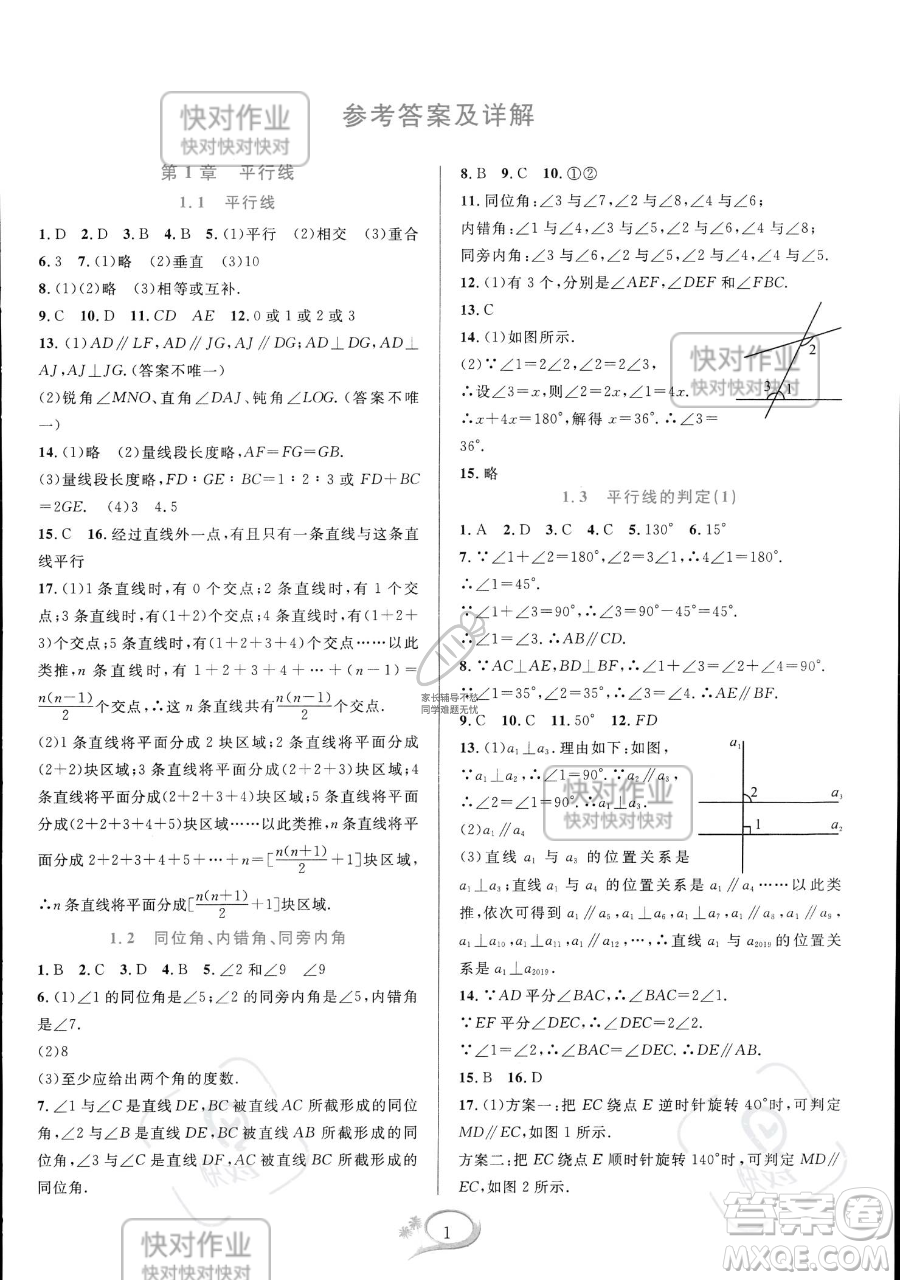 参考答案及详解
第1章 平行线
1.1 平行线
1. D 2. D 3. B 4. B 5. (1)平行 (2)相交 (3)重合
6. 3 7. (1)略 (2)垂直 (3)10
8. (1)(2)略 (3)相等或互补.
9. C 10. D 11. CD AE 12. 0或1或2或3
13. (1)AD∥LF,AD∥JG,AJ∥DG;AD⊥DG,AD⊥
AJ,AJ⊥JG.(答案不唯一)
(2)锐角∠MNO、直角∠DAJ、钝角∠LOG.(答案不唯
一)
14. (1)略 (2)量线段长度略,AF=FG=GB.
(3)量线段长度略,FD∶GE∶BC=1∶2∶3,FD+BC
=2GE. (4)3 4.5
15. C 16. 经过直线外一点,有且只有一条直线与这条直
线平行
17. (1)1条直线时,有0个交点;2条直线时,有1个交
点;3条直线时,有(1+2)个交点;4条直线时,有(1+2+
3)个交点;5条直线时,有(1+2+3+4)个交点……以此
类推,n条直线时,有1+2+3+4+…+(n−1)=
n(n−1)/2个交点,∴这n条直线共有n(n−1)/2个交点.
(2)1条直线将平面分成2块区域;2条直线将平面分成
(2+2)块区域;3条直线将平面分成(2+2+3)块区域;4
条直线将平面分成(2+2+3+4)块区域;5条直线将平面
分成(2+2+3+4+5)块区域……以此类推,n条直线将平
面分成2+2+3+4+5+…+n=[n(n+1)/2+1]块区域,
∴n条直线将平面分成[n(n+1)/2+1]块区域.
1.2 同位角、内错角、同旁内角
1. B 2. C 3. A 4. B 5. ∠2和∠9 ∠9
6. (1)∠1的同位角是∠5;∠2的同旁内角是∠5,内错角
是∠7.
(2)8
(3)至少应给出两个角的度数.
7. ∠1与∠C是直线DE,BC被直线AC所截形成的同位
角,∠2与∠B是直线DE,BC被直线AB所截形成的同位
角,∠3与∠C是直线DF,AC被直线BC所截形成的
同位角.
8. B 9. C 10. ①②
11. 同位角:∠3与∠7,∠2与∠8,∠4与∠6;
内错角:∠1与∠4,∠3与∠5,∠2与∠6,∠4与∠8;
同旁内角:∠3与∠6,∠2与∠5,∠2与∠4,∠4与∠5.
12. (1)有3个,分别是∠AEF,∠DEF和∠FBC.
13. C
14. (1)如图所示.
(2)∵∠1=2∠2,∠2=2∠3,
∴设∠3=x,则∠2=2x,∠1=4x.
∴x+4x=180°,解得x=36°.故∠3=
36°.
2
3
1
15. 略
1.3 平行线的判定(1)
1. A 2. D 3. C 4. C 5. 130° 6. 15°
7. ∵∠1+∠2=180°,∠2=3∠1,∴4∠1=180°.
∴∠1=45°.
∵∠1+∠3=90°,∴∠3=90°−45°=45°.
∴∠1=∠3.∴AB∥CD.
8. ∵AC⊥AE,BD⊥BF,∴∠1+∠3=∠2+∠4=90°.
∵∠1=35°,∠2=35°,∴∠3=∠4.∴AE∥BF.
9. C 10. C 11. 50° 12. FD
13. (1)a₁⊥a₃.理由如下:如图,
∵a₁⊥a₂,∴∠1=90°.∵a₂∥a₃,
∴∠2=∠1=90°.∴a₁⊥a₃.
(2)a₁∥a₄
(3)直线a₁与a₃的位置关系是
a₁⊥a₃;直线a₁与a₄的位置关系是a₁∥a₄……以此类
推,依次可得到a₁∥a₅,a₁⊥a₆,a₁⊥a₇,a₁∥a₈,a₁∥a₉,
a₁⊥a₁₀,a₁⊥a₁₁,…,∴直线a₁与a₂₀₁₉的位置关
系是a₁⊥a₂₀₁₉.
a₁
2
a₃
1
a₂
14. ∵AD平分∠BAC,∴∠BAC=2∠1.
∵EF平分∠DEC,∴∠DEC=2∠2.
∵∠1=∠2,∴∠BAC=∠DEC.∴AB∥DE.
15. B 16. D
17. (1)方案一:把EC绕点E逆时针旋转40°时,可判定
MD∥EC,如图1所示.
方案二:把EC绕点E顺时针旋转140°时,可判定MD∥
EC,如图2所示.
1
快对作业
快对快对快对
快对作业
快对快对快对
快对作业
快对快对快对
快对作业
快对快对快对
家长辅导不愁
同学难题无忧
答案卷
MXQE.COM